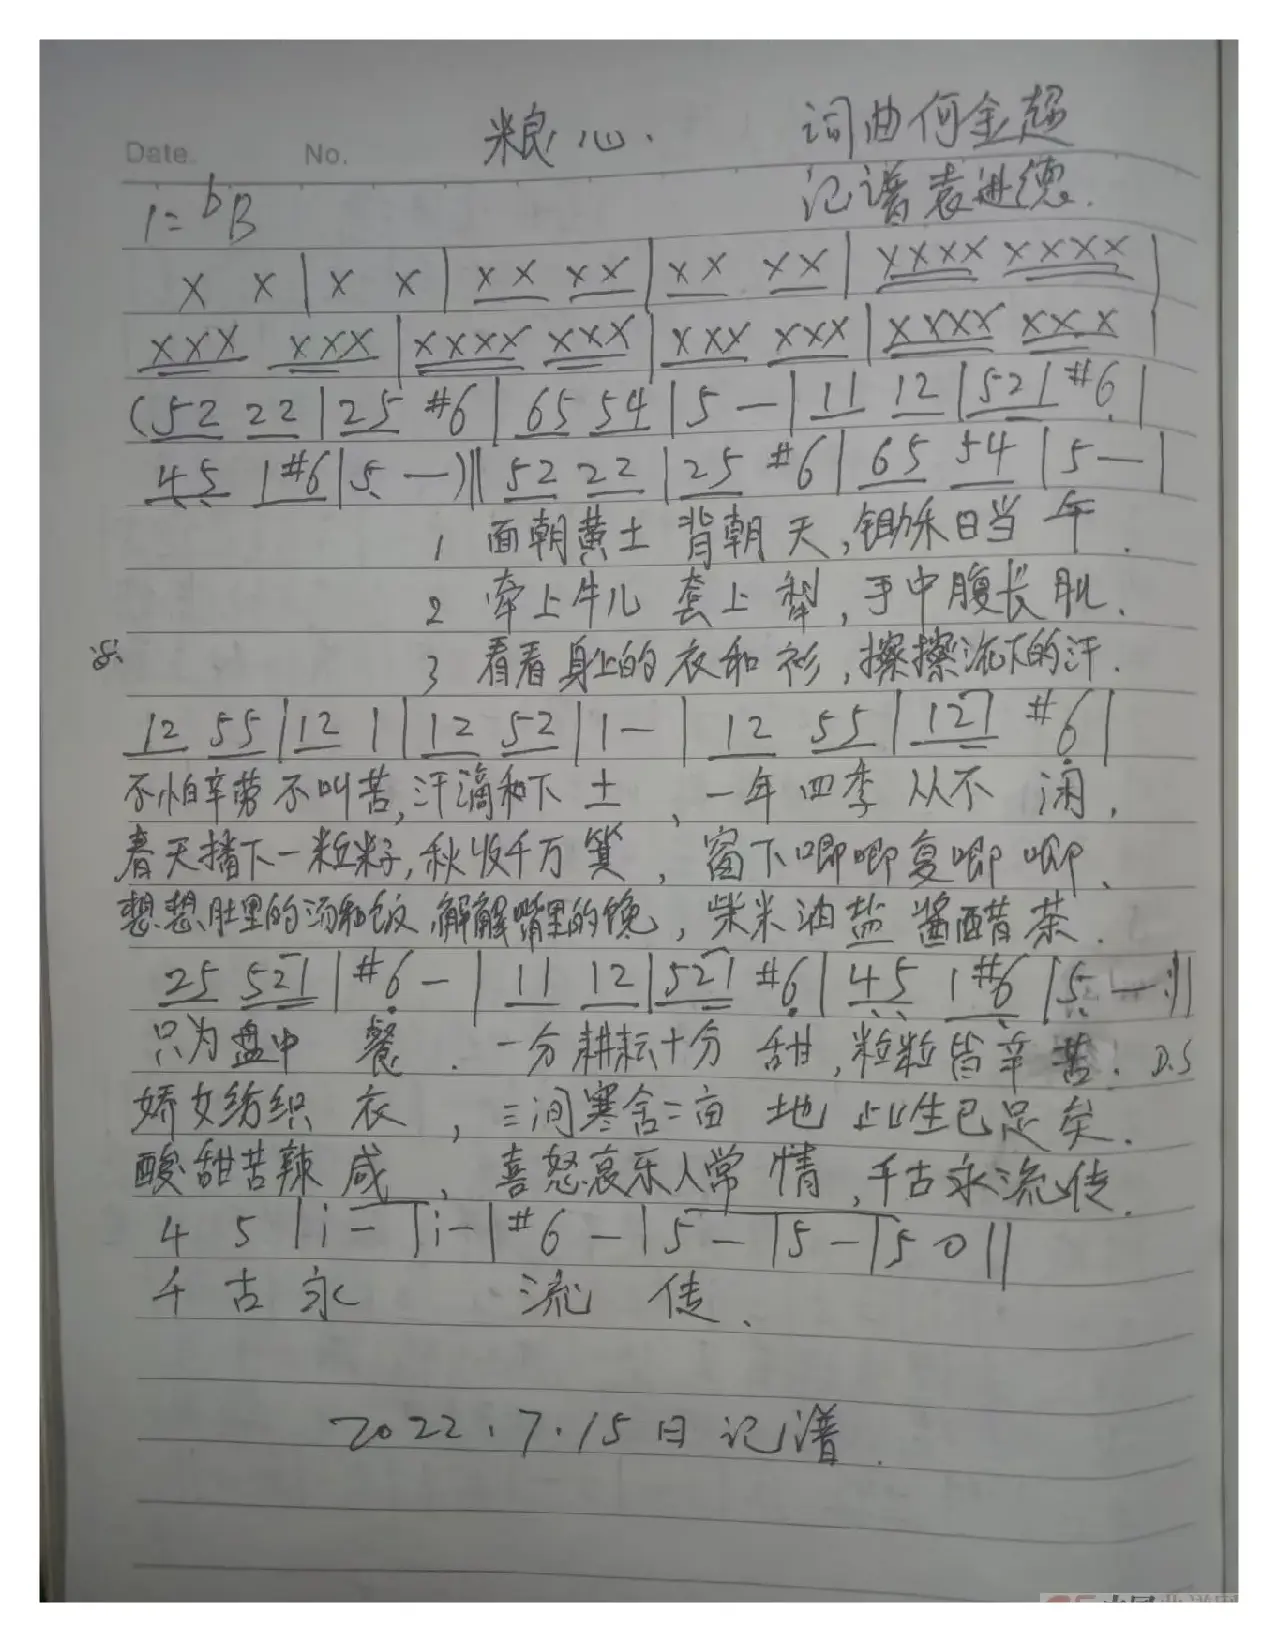 Date. No. 粮心. 词曲何金超
记谱袁进德.
1=bB
X X | X X | XX XX | XX XX | XXXX XXXX |
XXX XXX | XXXX XXX | XXX XXX | XXXX XXX |
(52 22 | 25 #6 | 65 54 | 5 — | 11 12 | 521 #6 |
45 1#6 | 5 —)‖ 52 22 | 25 #6 | 65 54 | 5 — |
1 面朝黄土 背朝天,锄禾日当 午.
2 牵上牛儿 套上犁,手中腹长肌.
3 看看身上的衣和衫,擦擦流下的汗.
12 55 | 12 1 | 12 52 | 1 — | 12 55 | 121 #6 |
不怕辛劳不叫苦,汗滴和下土,一年四季从不闲,
春天播下一粒籽,秋收千万箕,窗下唧唧复唧唧、
想想肚里的汤和饭,解解嘴里的馋,柴米油盐酱醋茶.
25 521 | #6 — | 11 12 | 521 #6 | 45 1#6 | 5 — :‖
只为盘中餐.一分耕耘十分甜,粒粒皆辛苦. D.S
娇女纺织衣,三间寒舍二亩地 此生已足矣.
酸甜苦辣咸、喜怒哀乐人常情,千古永流传.
4 5 | i — | i — | #6 — | 5 — | 5 — | 5 0 ‖
千古永 流传.
2022.7.15日记谱.